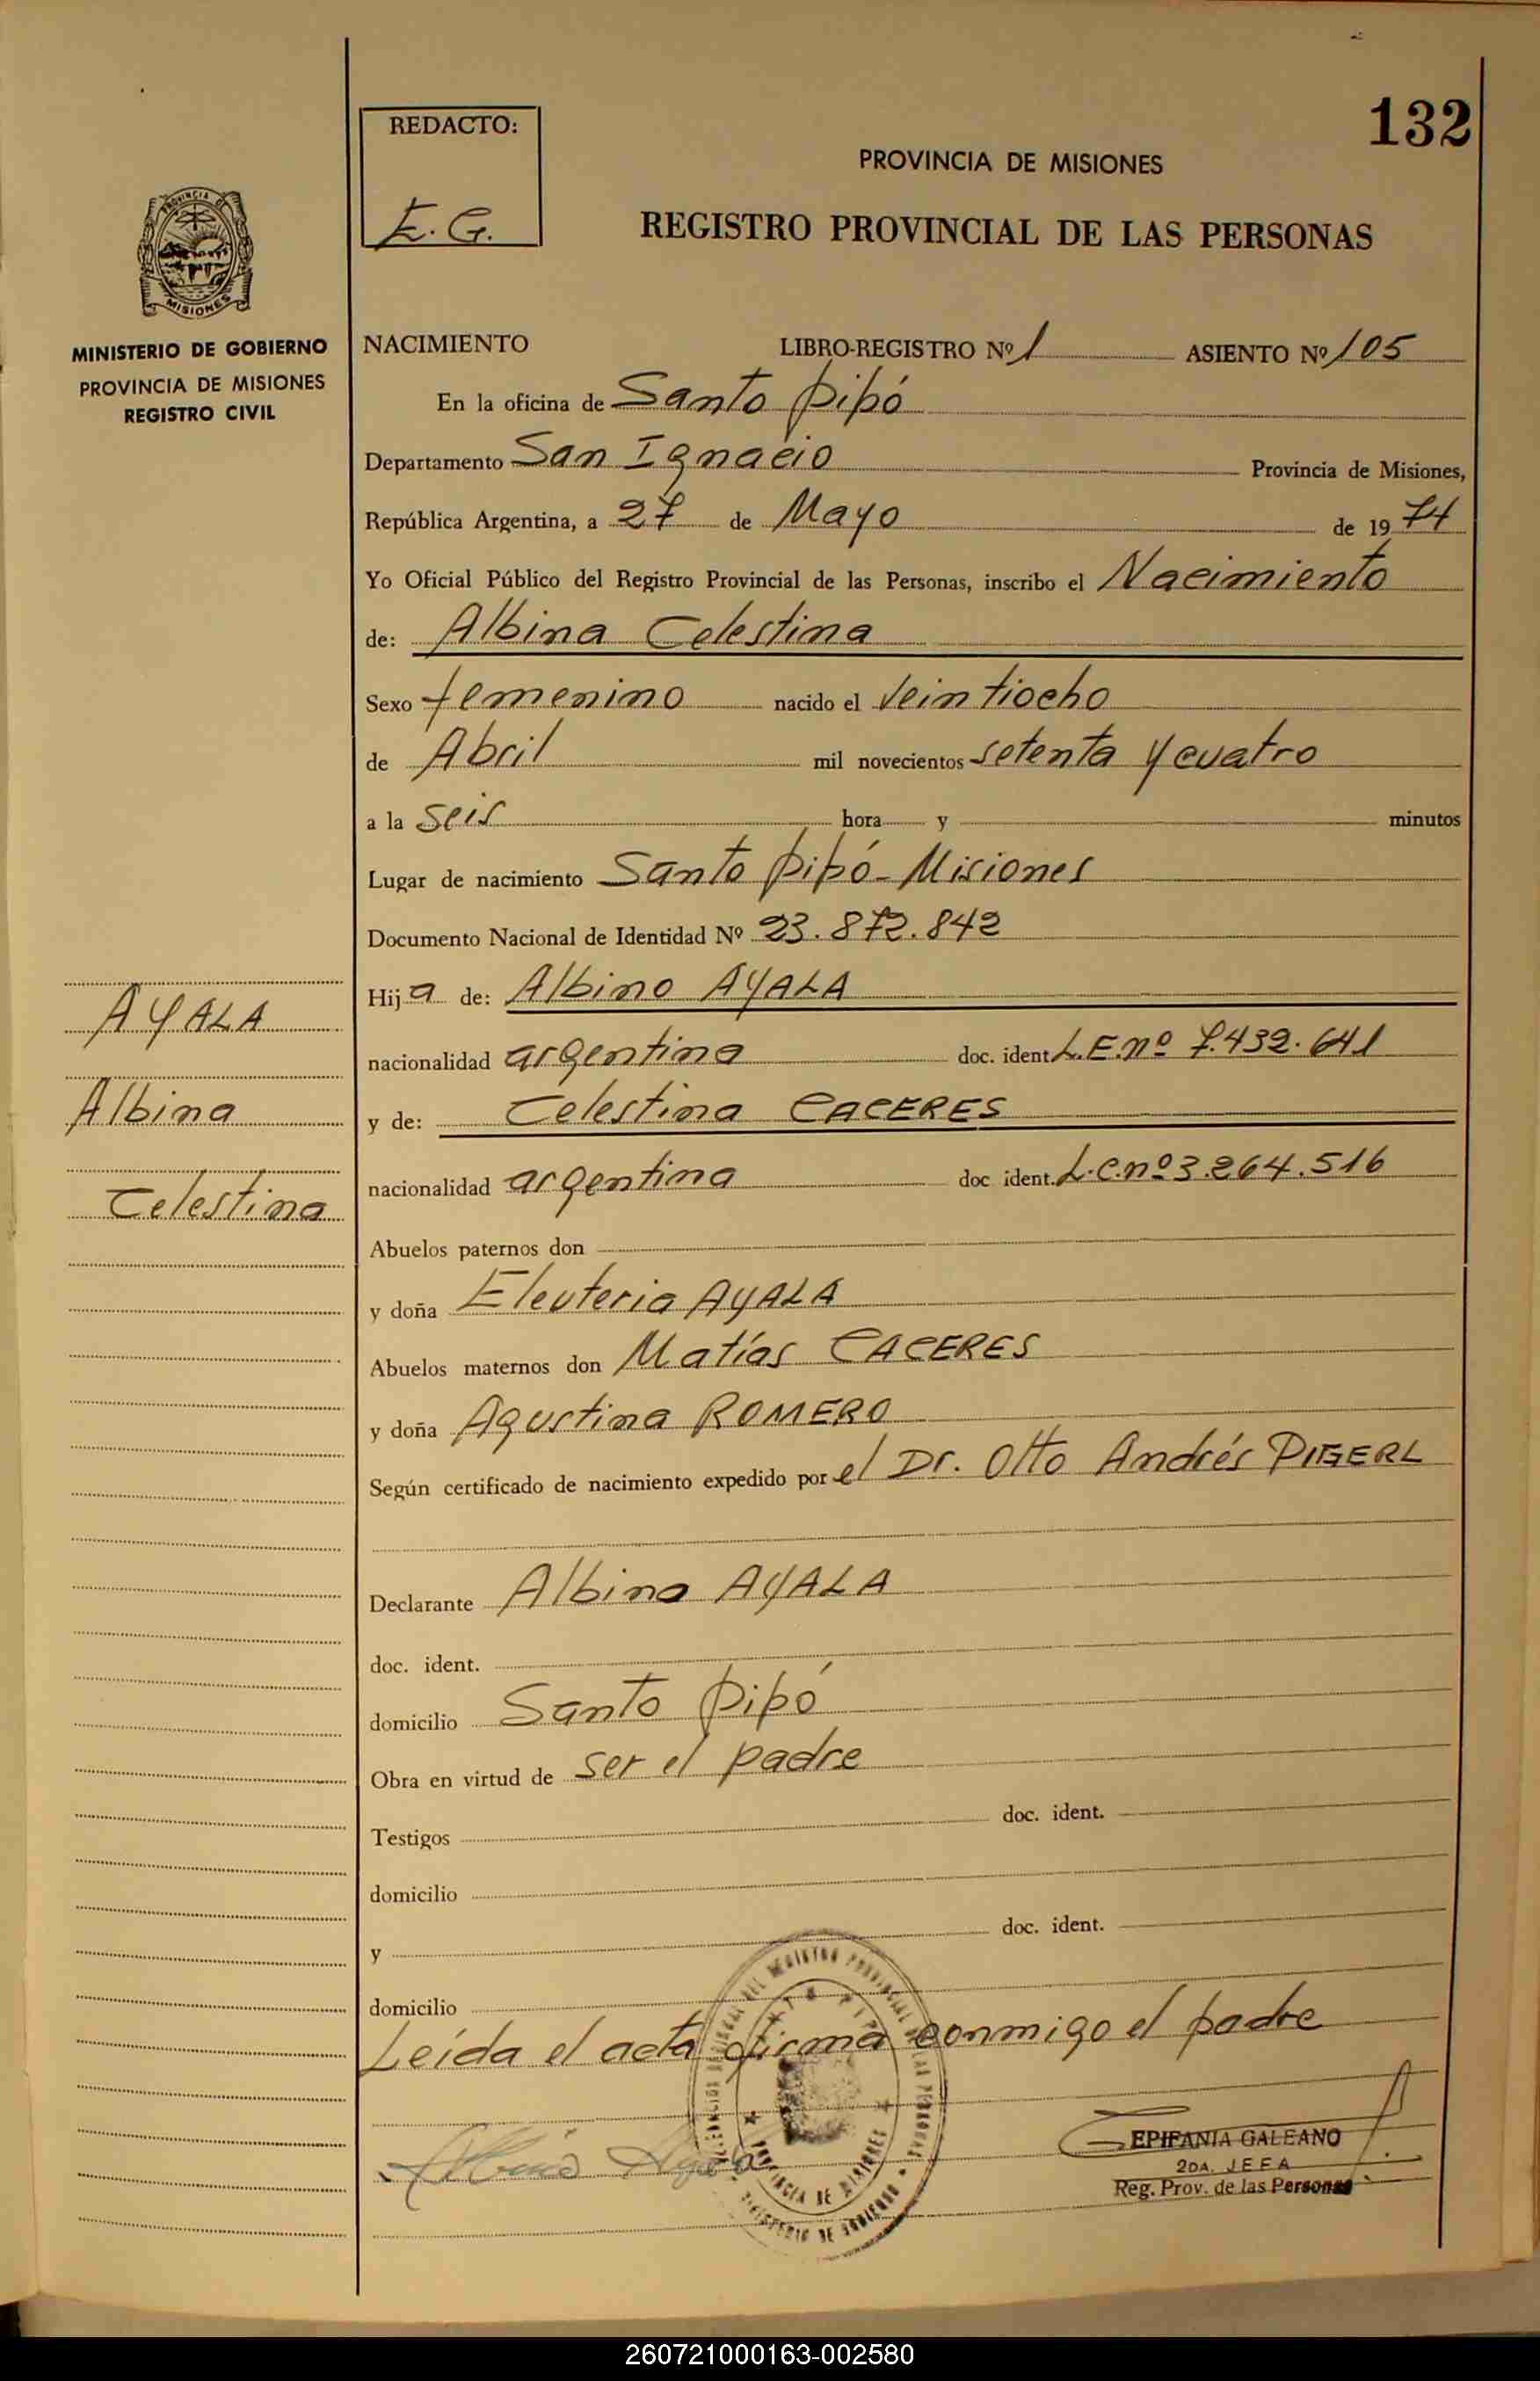 132
REDACTO:
E. G.
PROVINCIA DE MISIONES
REGISTRO PROVINCIAL DE LAS PERSONAS
PROVINCIA DE
MISIONES
MINISTERIO DE GOBIERNO
PROVINCIA DE MISIONES
REGISTRO CIVIL
NACIMIENTO LIBRO-REGISTRO Nº 1 ASIENTO Nº 105
En la oficina de Santo Pipó
Departamento San Ignacio Provincia de Misiones,
República Argentina, a 27 de Mayo de 1974
Yo Oficial Público del Registro Provincial de las Personas, inscribo el Nacimiento
de: Albina Celestina
Sexo femenino nacido el Veintiocho
de Abril mil novecientos setenta y cuatro
a la seis hora y minutos
Lugar de nacimiento Santo Pipó - Misiones
Documento Nacional de Identidad Nº 23.872.842
AYALA
Albina
Celestina
Hija de: Albino AYALA
nacionalidad argentina doc. ident. L.E.nº 7.432.641
y de: Celestina CACERES
nacionalidad argentina doc ident. L.C.nº 3.264.516
Abuelos paternos don
y doña Eleuteria AYALA
Abuelos maternos don Matías CACERES
y doña Agustina ROMERO
Según certificado de nacimiento expedido por el Dr. Otto Andrés PIGERL
Declarante Albino AYALA
doc. ident.
domicilio Santo Pipó
Obra en virtud de ser el padre
Testigos doc. ident.
domicilio
y doc. ident.
domicilio
Leída el acta firma conmigo el padre
Albino Ayala
EPIFANIA GALEANO
2DA. JEFA
Reg. Prov. de las Personas
PROVINCIA DE MISIONES
MINISTERIO DE GOBIERNO
260721000163-002580